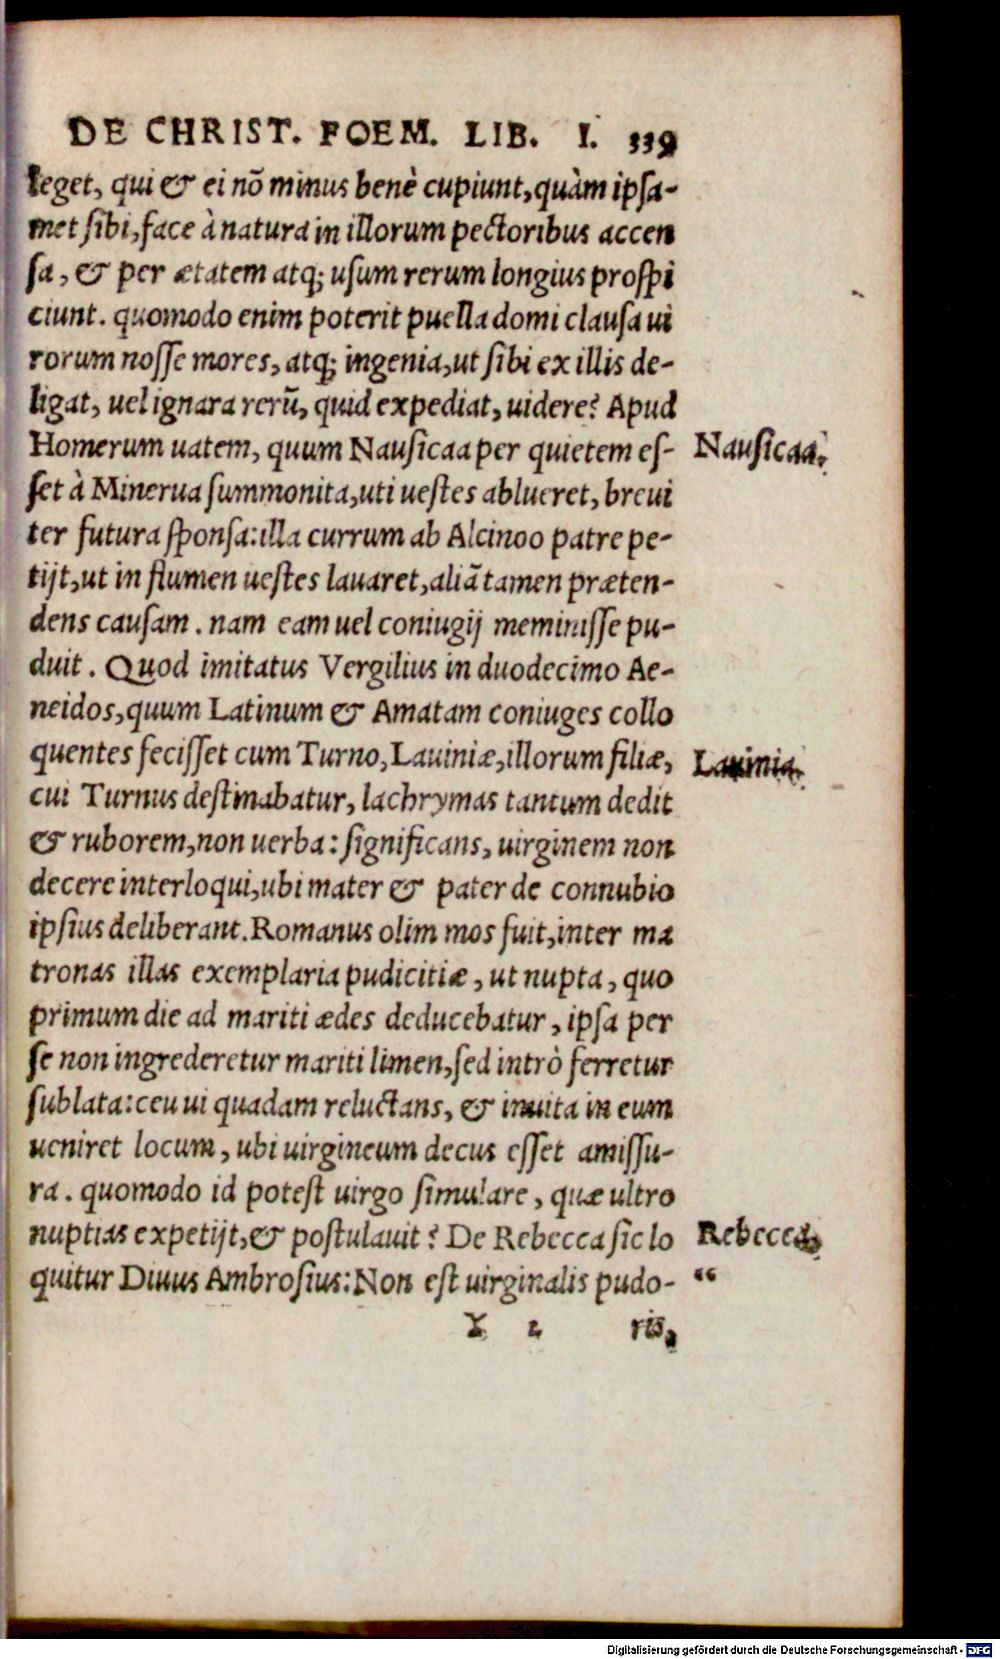 DE CHRIST. FOEM. LIB. I. 339
leget, qui & ei nõ minus benè cupiunt, quàm ipsa-
met sibi, face à natura in illorum pectoribus accen
sa, & per ætatem atq; usum rerum longius prospi
ciunt. quomodo enim poterit puella domi clausa ui
rorum nosse mores, atq; ingenia, ut sibi ex illis de-
ligat, uel ignara rerũ, quid expediat, uidere? Apud
Homerum uatem, quum Nausicaa per quietem es-
Nausicaa.
set à Minerua summonita, uti uestes ablueret, breui
ter futura sponsa: illa currum ab Alcinoo patre pe-
tijt, ut in flumen uestes lauaret, aliã tamen præten-
dens causam. nam eam uel coniugij meminisse pu-
duit. Quod imitatus Vergilius in duodecimo Ae-
neidos, quum Latinum & Amatam coniuges collo
quentes fecisset cum Turno, Lauiniæ, illorum filiæ,
Lauinia.
cui Turnus destinabatur, lachrymas tantum dedit
& ruborem, non uerba: significans, uirginem non
decere interloqui, ubi mater & pater de connubio
ipsius deliberant. Romanus olim mos fuit, inter ma
tronas illas exemplaria pudicitiæ, ut nupta, quo
primum die ad mariti ædes deducebatur, ipsa per
se non ingrederetur mariti limen, sed intrò ferretur
sublata: ceu ui quadam reluctans, & inuita in eum
ueniret locum, ubi uirgineum decus esset amissu-
ra. quomodo id potest uirgo simulare, quæ ultro
nuptias expetijt, & postulauit? De Rebecca sic lo
Rebecca.
quitur Diuus Ambrosius: Non est uirginalis pudo-
“
Y 2 ris,
Digitalisierung gefördert durch die Deutsche Forschungsgemeinschaft - DFG